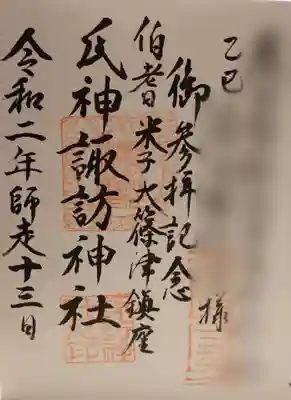 乙巳
様
御参拝記念
伯耆 米子大篠津鎮座
氏神諏訪神社
令和二年師走十三日